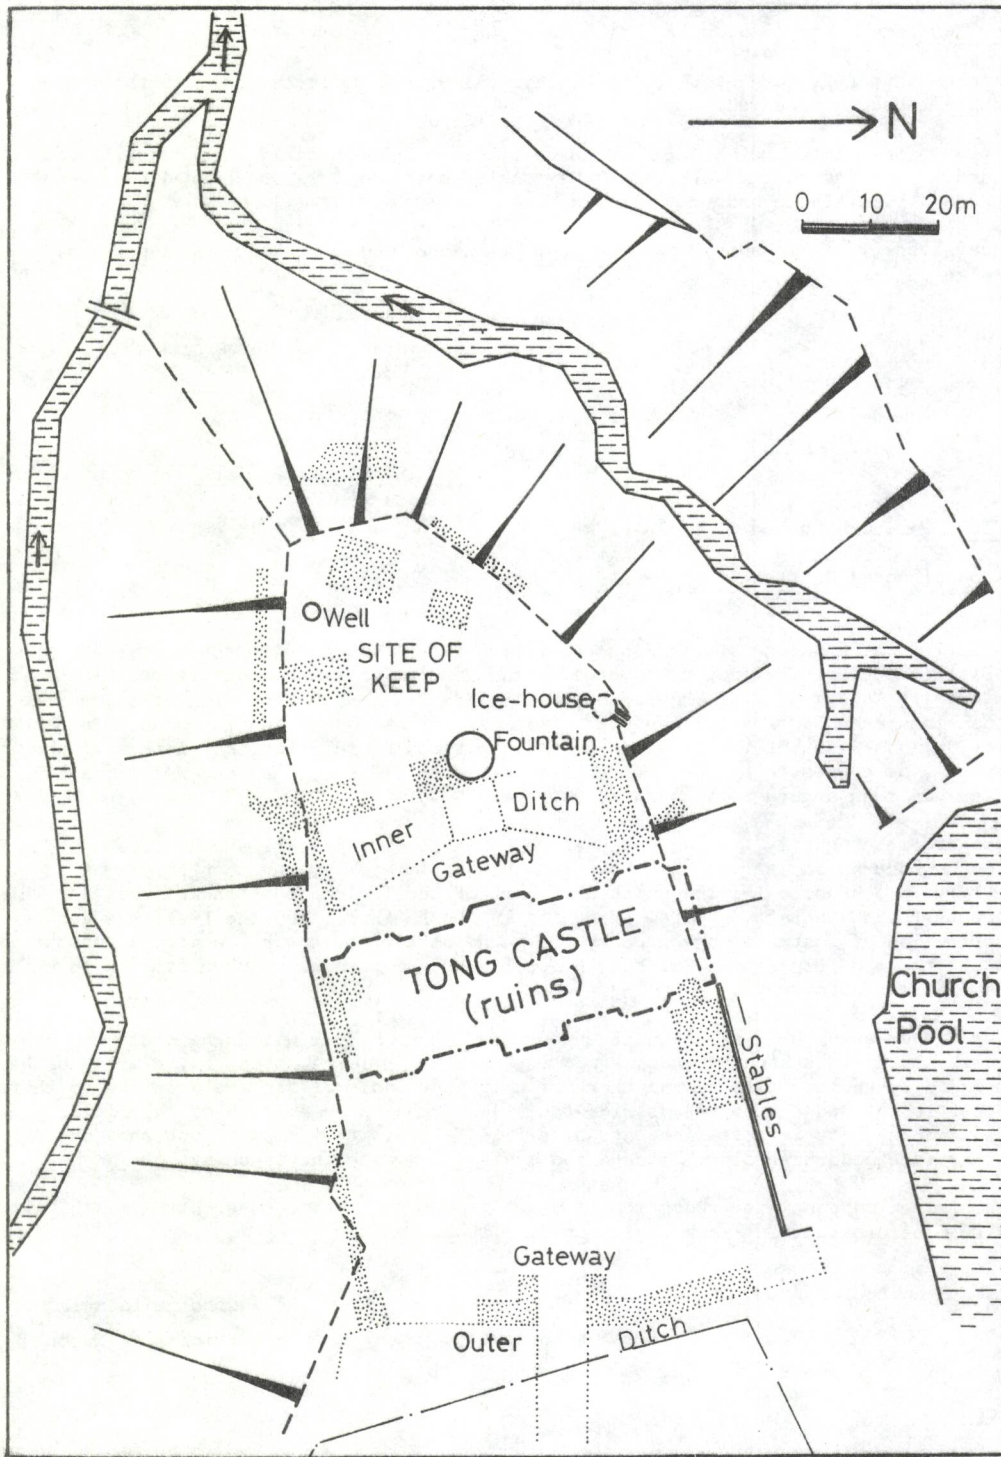 N
0 10 20m
Well
SITE OF
KEEP
Ice-house
Fountain
Inner Ditch
Gateway
TONG CASTLE
(ruins)
Church
Pool
Stables
Gateway
Outer Ditch